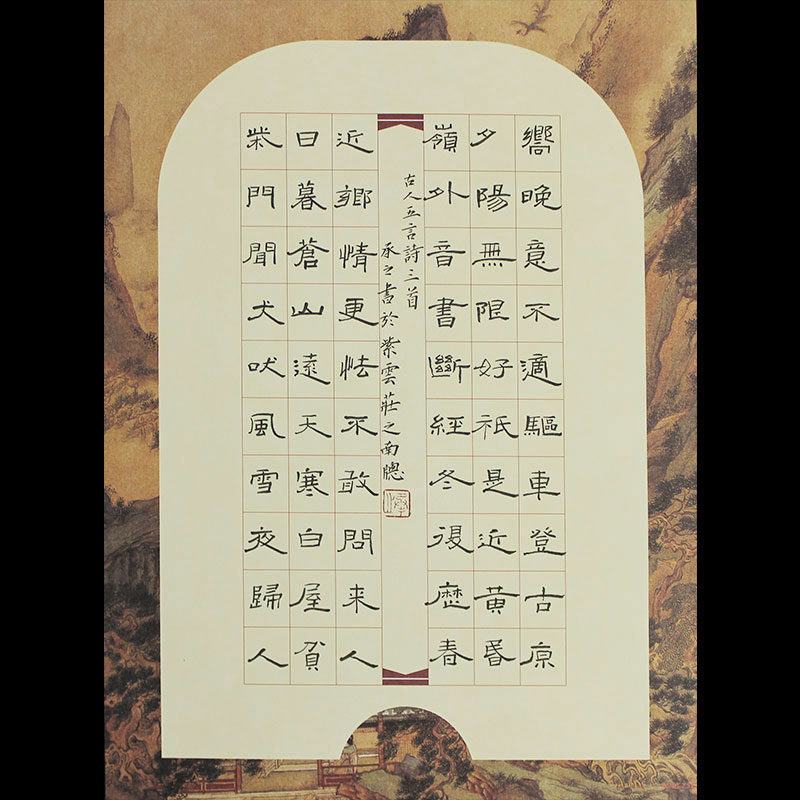 嚮晚意不適驅車登古原
夕陽無限好祇是近黄昬
嶺外音書斷經冬復歷春
古人五言詩三首
承之書於紫雲莊之南牕
近鄉情更怯不敢問来人
日暮蒼山遠天寒白屋貧
柴門聞犬吠風雪夜歸人